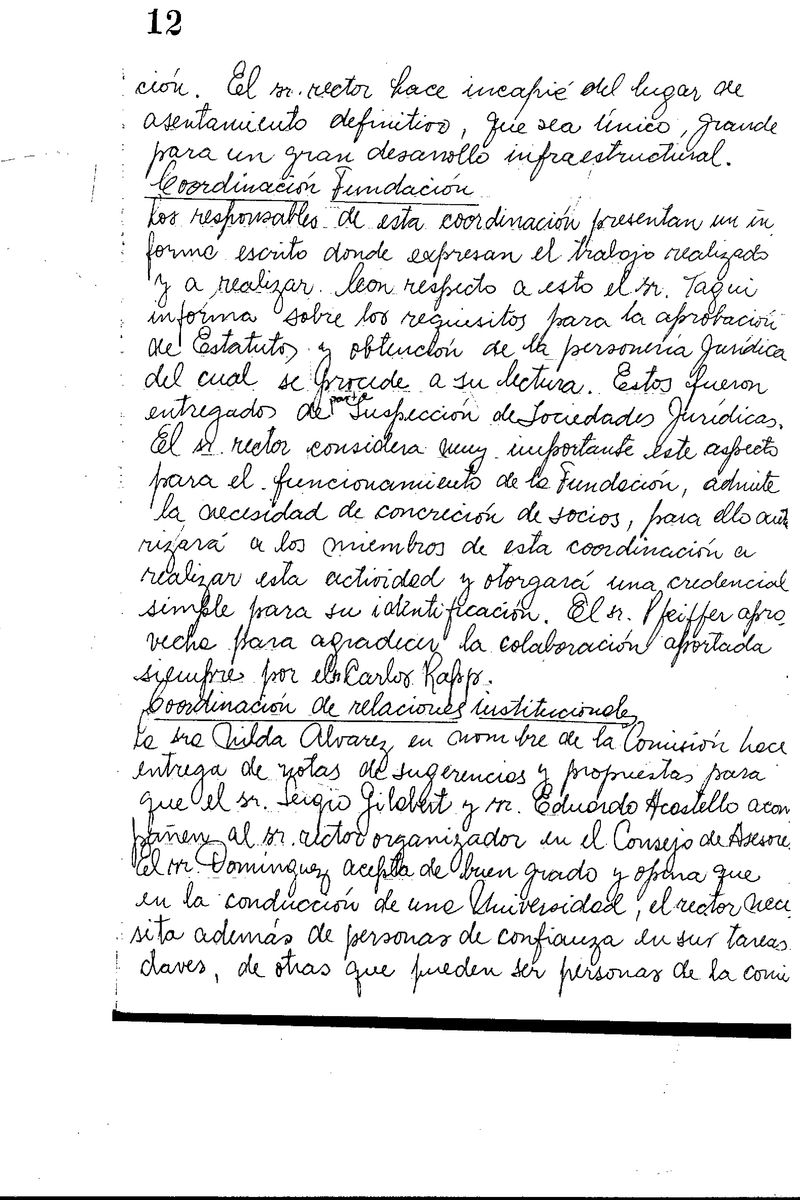 12
ción. El sr. rector hace incapié del lugar de
asentamiento definitivo, que sea único, grande
para un gran desarrollo infraestructural.
Coordinación Fundación
Los responsables de esta coordinación presentan un in
forme escrito donde expresan el trabajo realizado
y a realizar. Con respecto a esto el sr. Taqui
informa sobre los requisitos para la aprobación
de Estatutos y obtención de la personería Jurídica
del cual se procede a su lectura. Estos fueron
entregados de parte Inspección de Sociedades Jurídicas.
El sr. rector considera muy importante este aspecto
para el funcionamiento de la Fundación, admite
la necesidad de concreción de socios, para ello auto
rizará a los miembros de esta coordinación a
realizar esta actividad y otorgará una credencial
simple para su identificación. El sr. Pfeiffer apro
vecha para agradecer la colaboración aportada
siempre por el sr Carlos Rapp.
Coordinación de relaciones institucionales
La sra Nilda Alvarez en nombre de la Comisión hace
entrega de notas de sugerencias y propuestas para
que el sr. Sergio Gilabert y sr. Eduardo Acastello acom
pañen al sr. rector organizador en el Consejo de Asesores
El sr. Domínguez acepta de buen grado y opina que
en la conducción de una Universidad, el rector nece
sita además de personas de confianza en sus tareas
claves, de otras que pueden ser personas de la comu